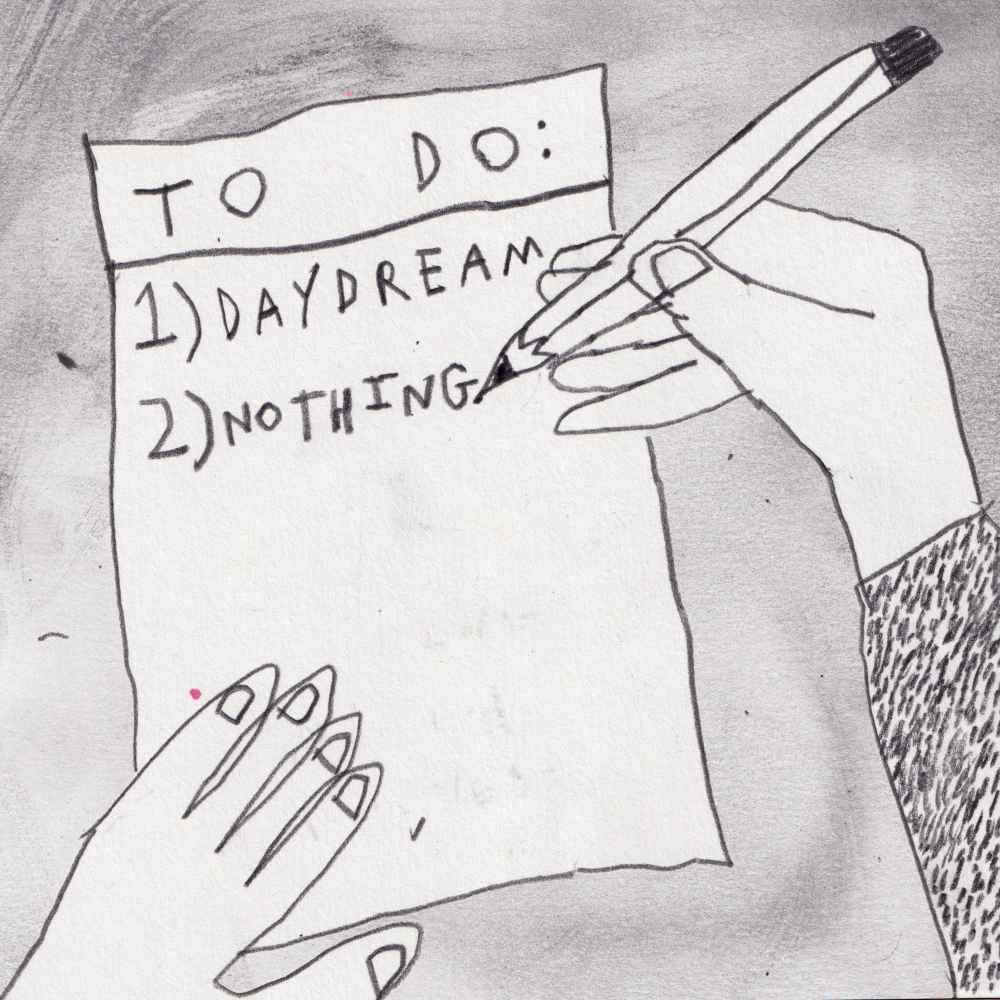 TO DO:
1) DAYDREAM
2) NOTHING